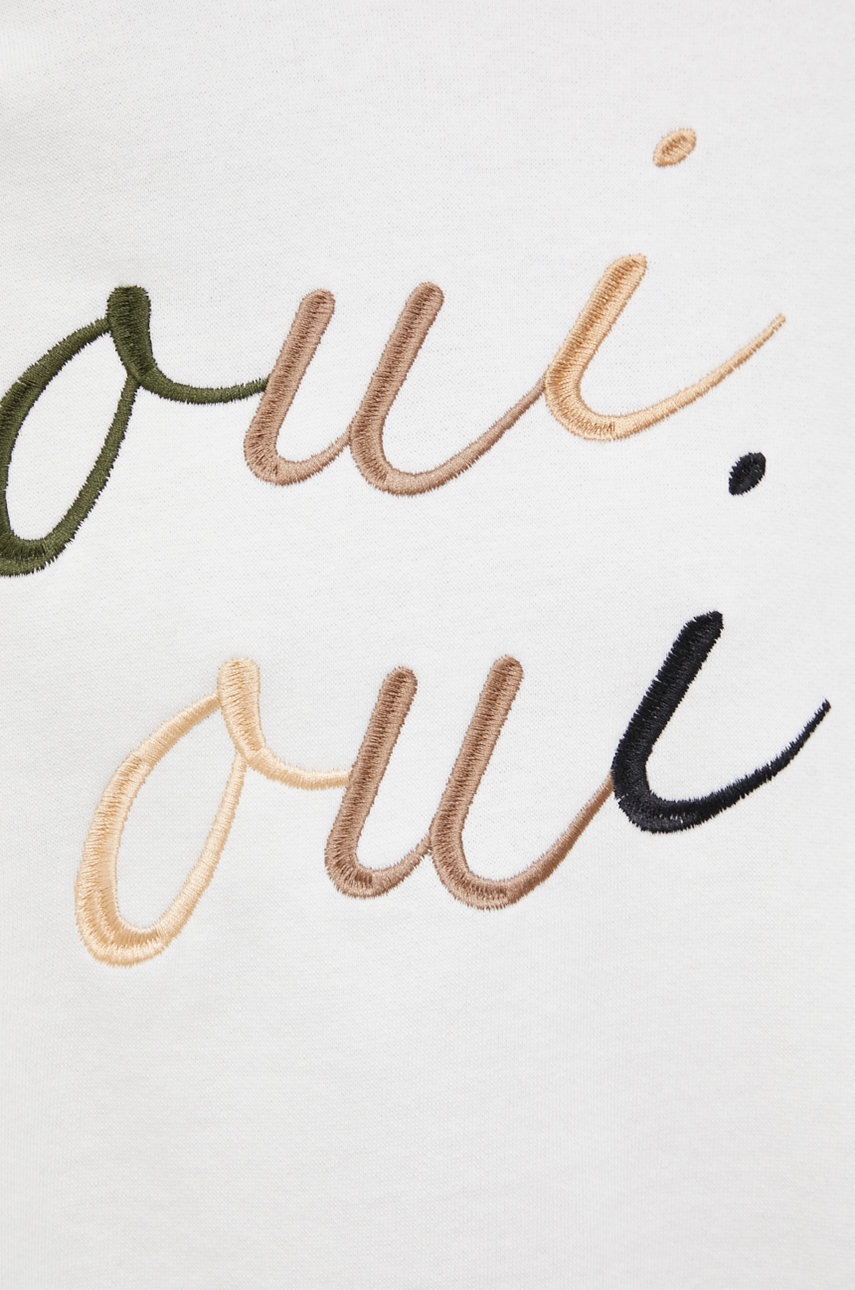 oui
oui